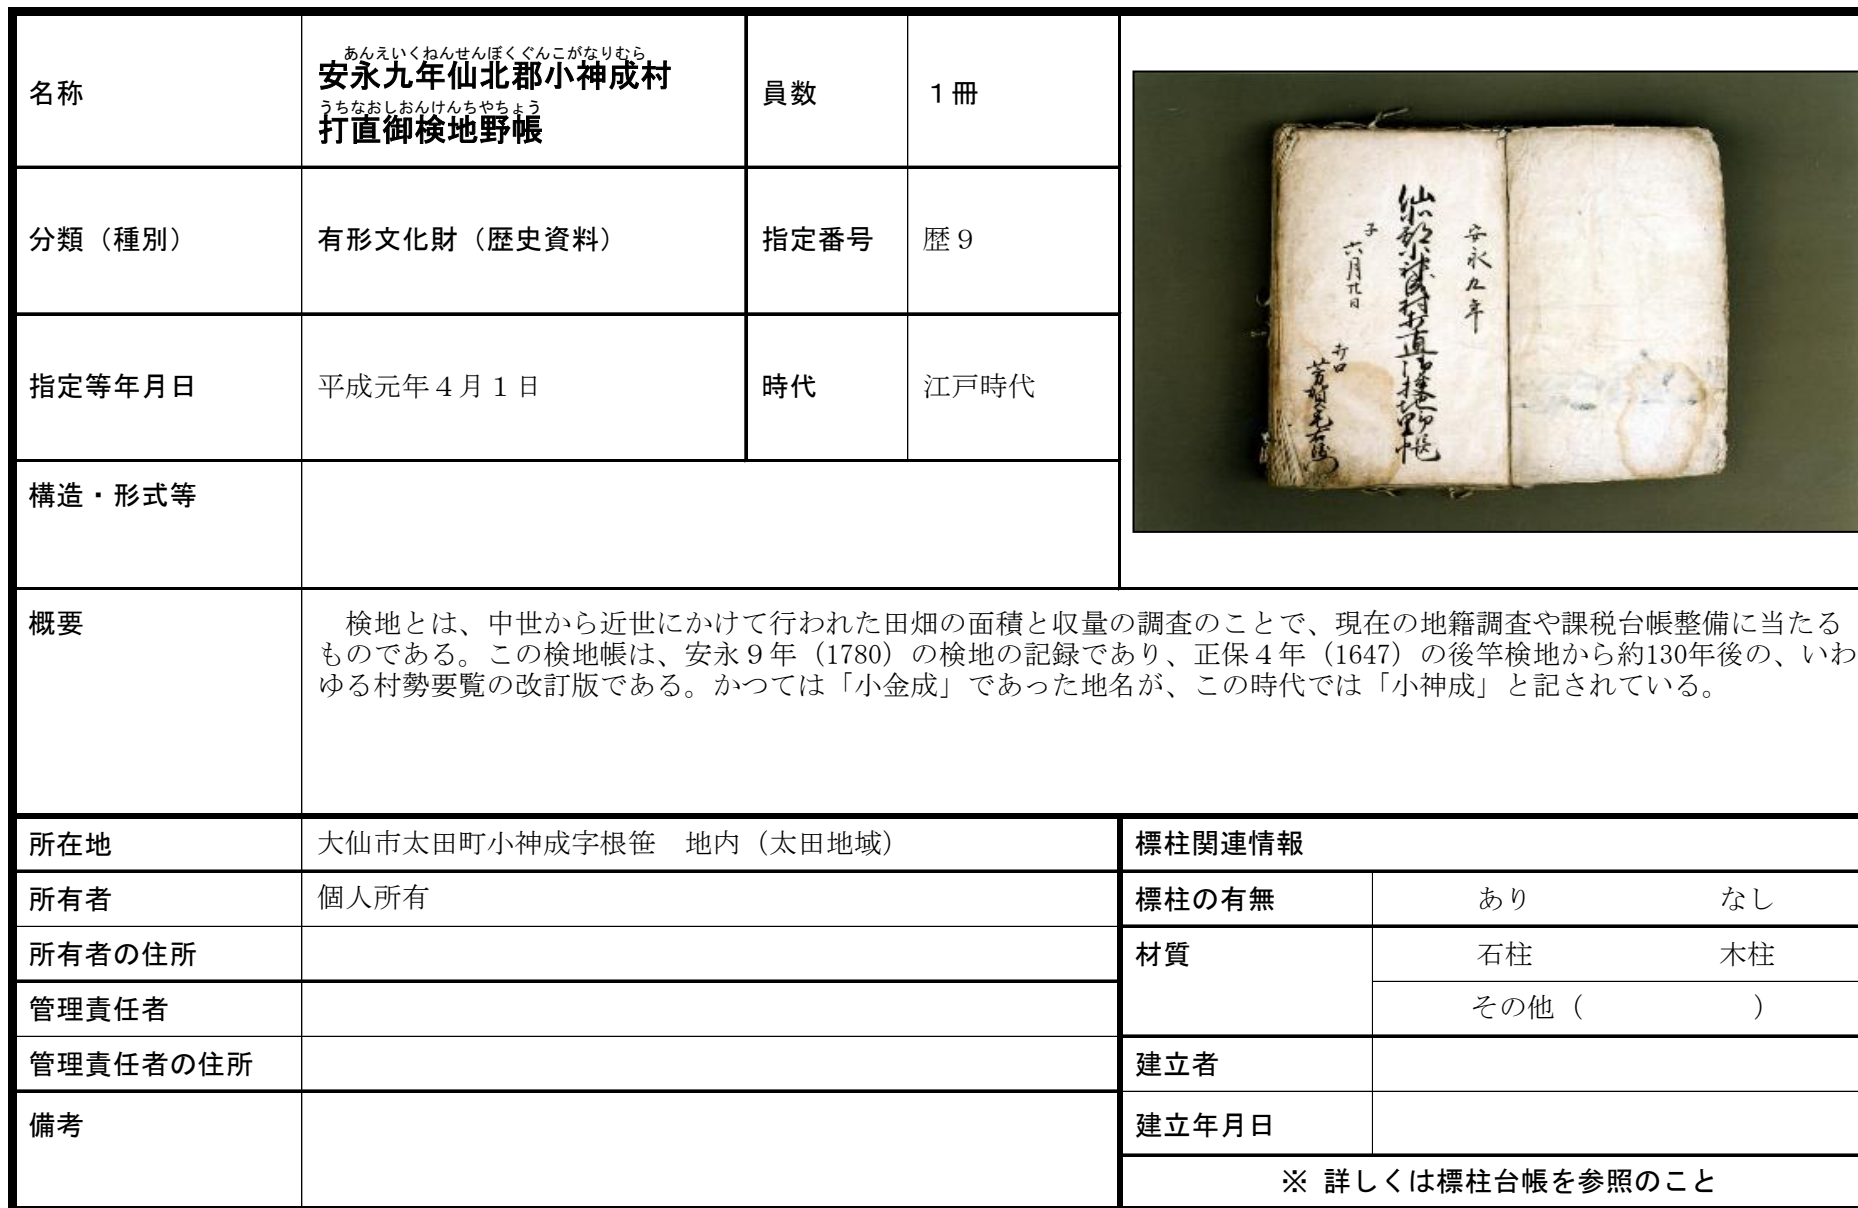 名称
あんえいくねんせんぼくぐんこがなりむら
安永九年仙北郡小神成村
うちなおしおんけんちやちょう
打直御検地野帳
員数
1冊
分類（種別）
有形文化財（歴史資料）
指定番号
歴９
指定等年月日
平成元年４月１日
時代
江戸時代
安永九年
仙北郡小神成村打直御検地野帳
子
六月廿日
打口
構造・形式等
概要
検地とは、中世から近世にかけて行われた田畑の面積と収量の調査のことで、現在の地籍調査や課税台帳整備に当たる
ものである。この検地帳は、安永９年（1780）の検地の記録であり、正保４年（1647）の後竿検地から約130年後の、いわ
ゆる村勢要覧の改訂版である。かつては「小金成」であった地名が、この時代では「小神成」と記されている。
所在地
大仙市太田町小神成字根笹　地内（太田地域）
所有者
個人所有
所有者の住所
管理責任者
管理責任者の住所
備考
標柱関連情報
標柱の有無
あり　なし
材質
石柱　木柱
その他（　）
建立者
建立年月日
※ 詳しくは標柱台帳を参照のこと